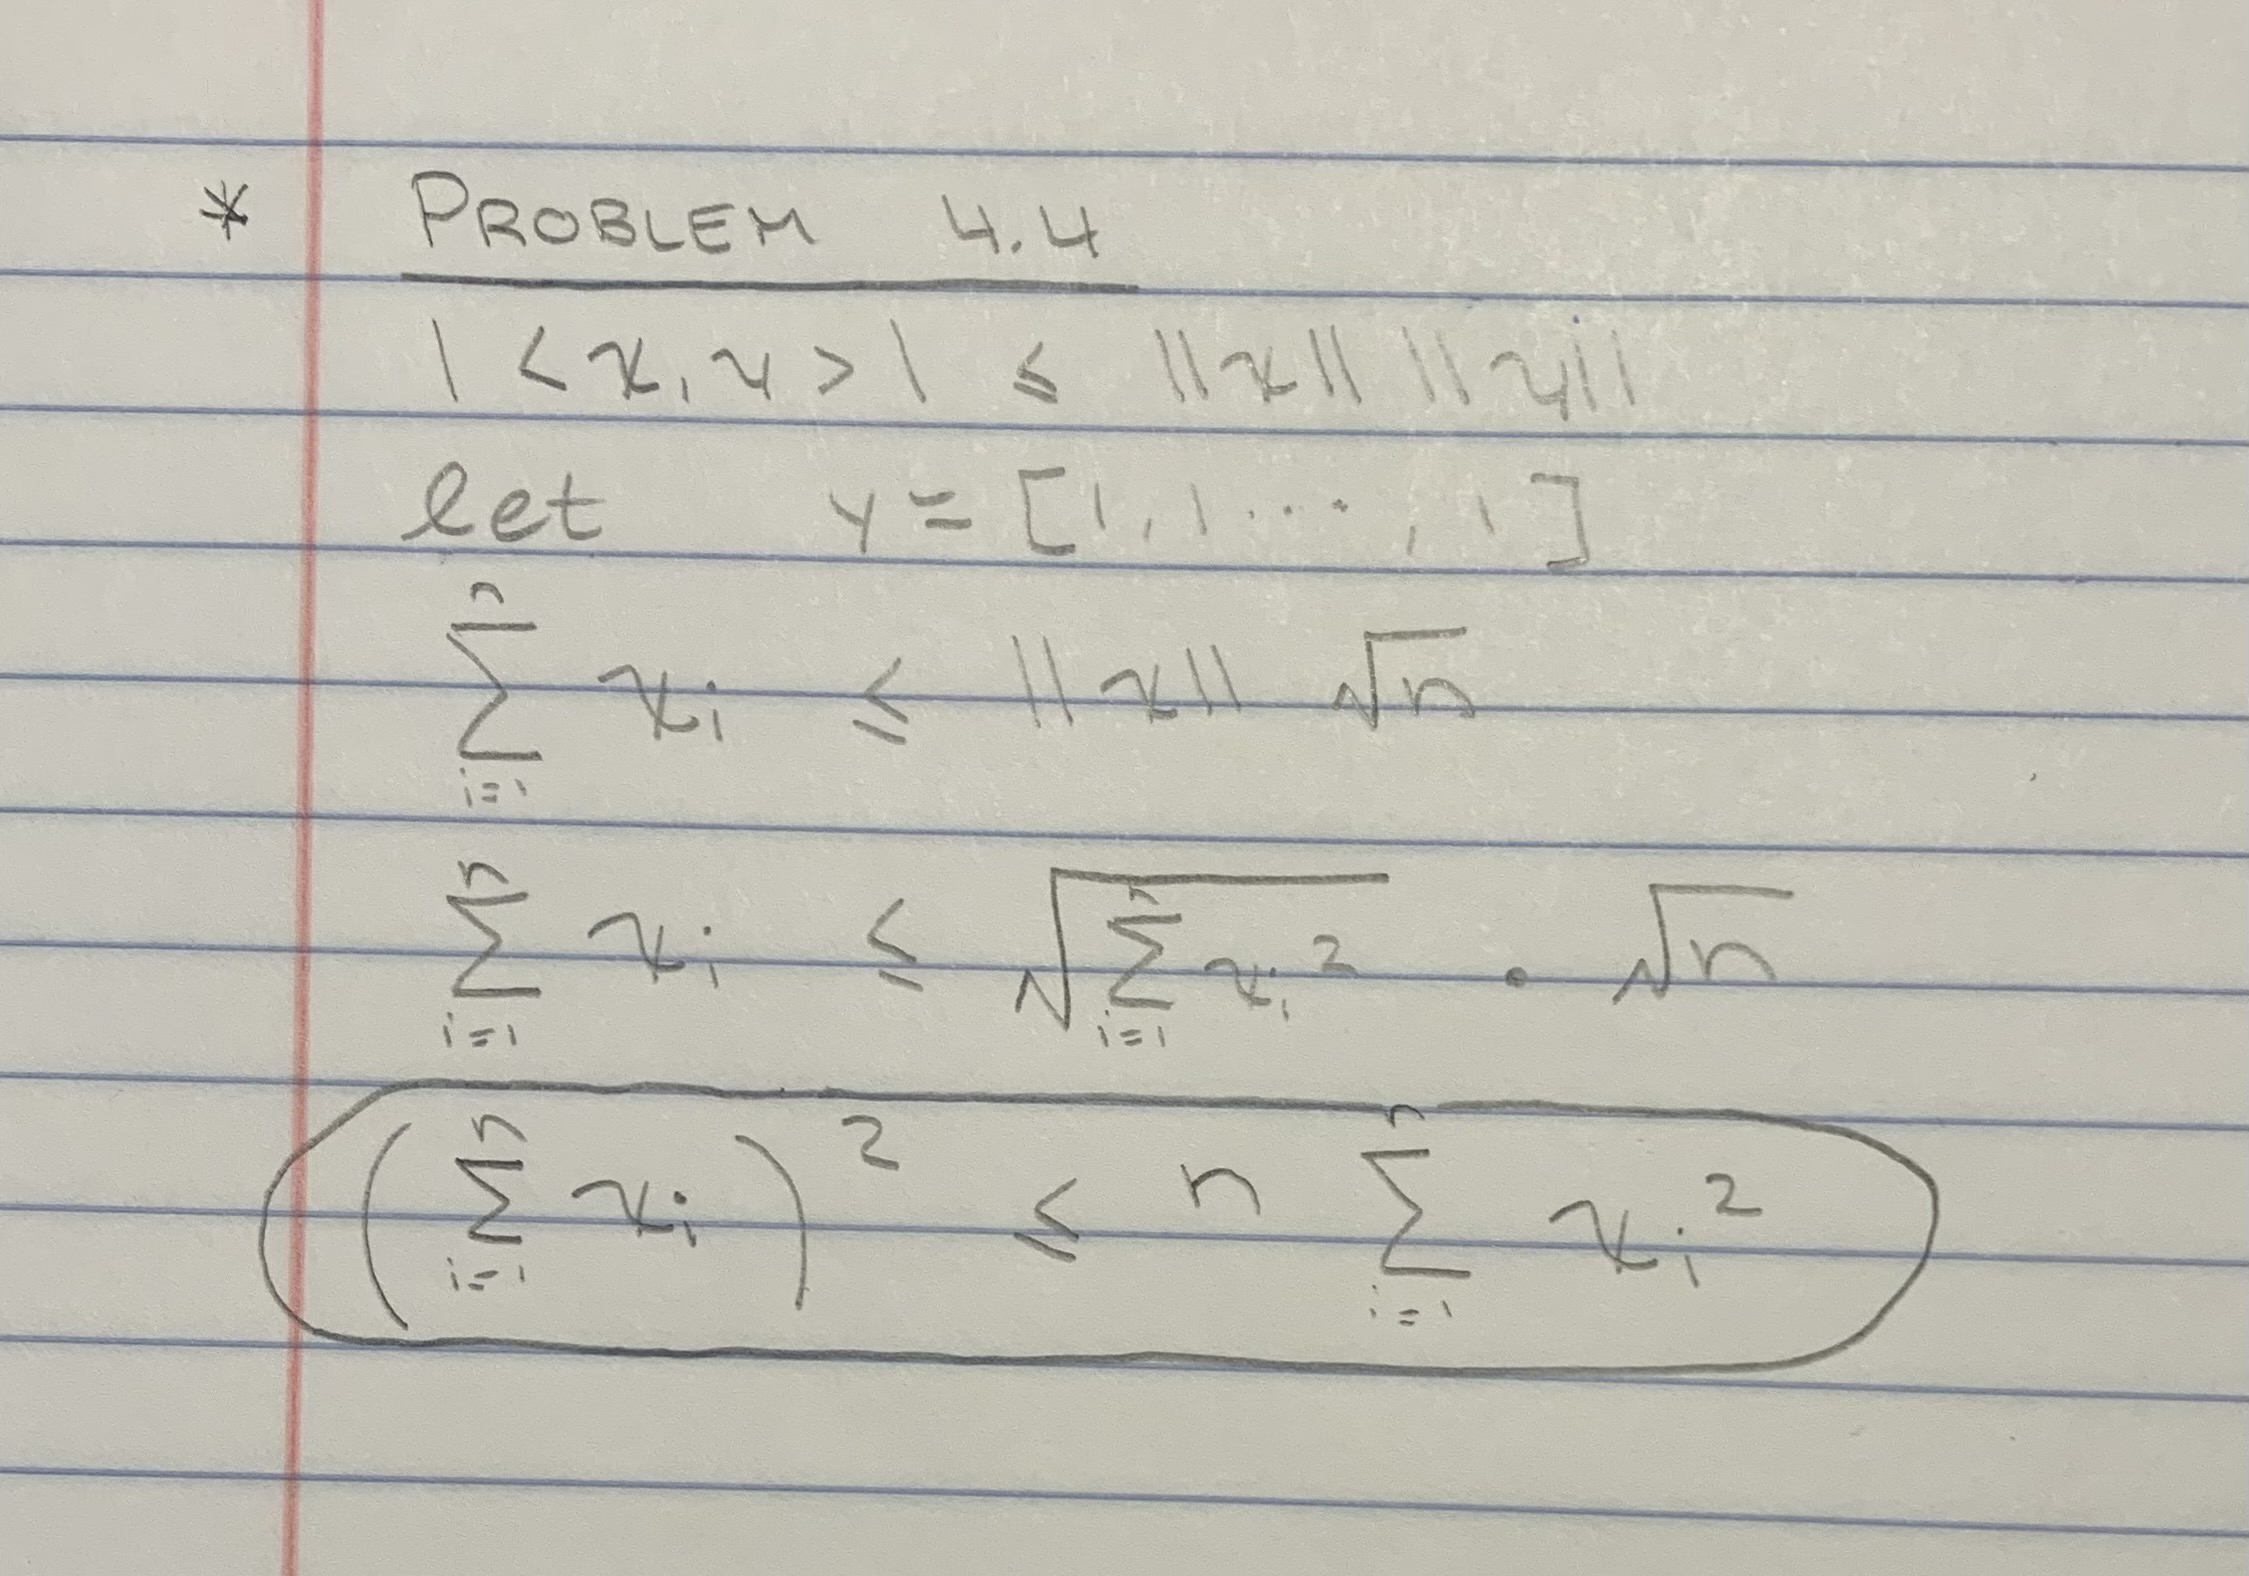 * PROBLEM 4.4
| < x, y > | ≤ ||x|| ||y||
let y = [1, 1 ··· , 1]
∑_{i=1}^{n} x_i ≤ ||x|| √n
∑_{i=1}^{n} x_i ≤ √(∑_{i=1}^{n} x_i^2) · √n
(∑_{i=1}^{n} x_i)^2 ≤ n ∑_{i=1}^{n} x_i^2